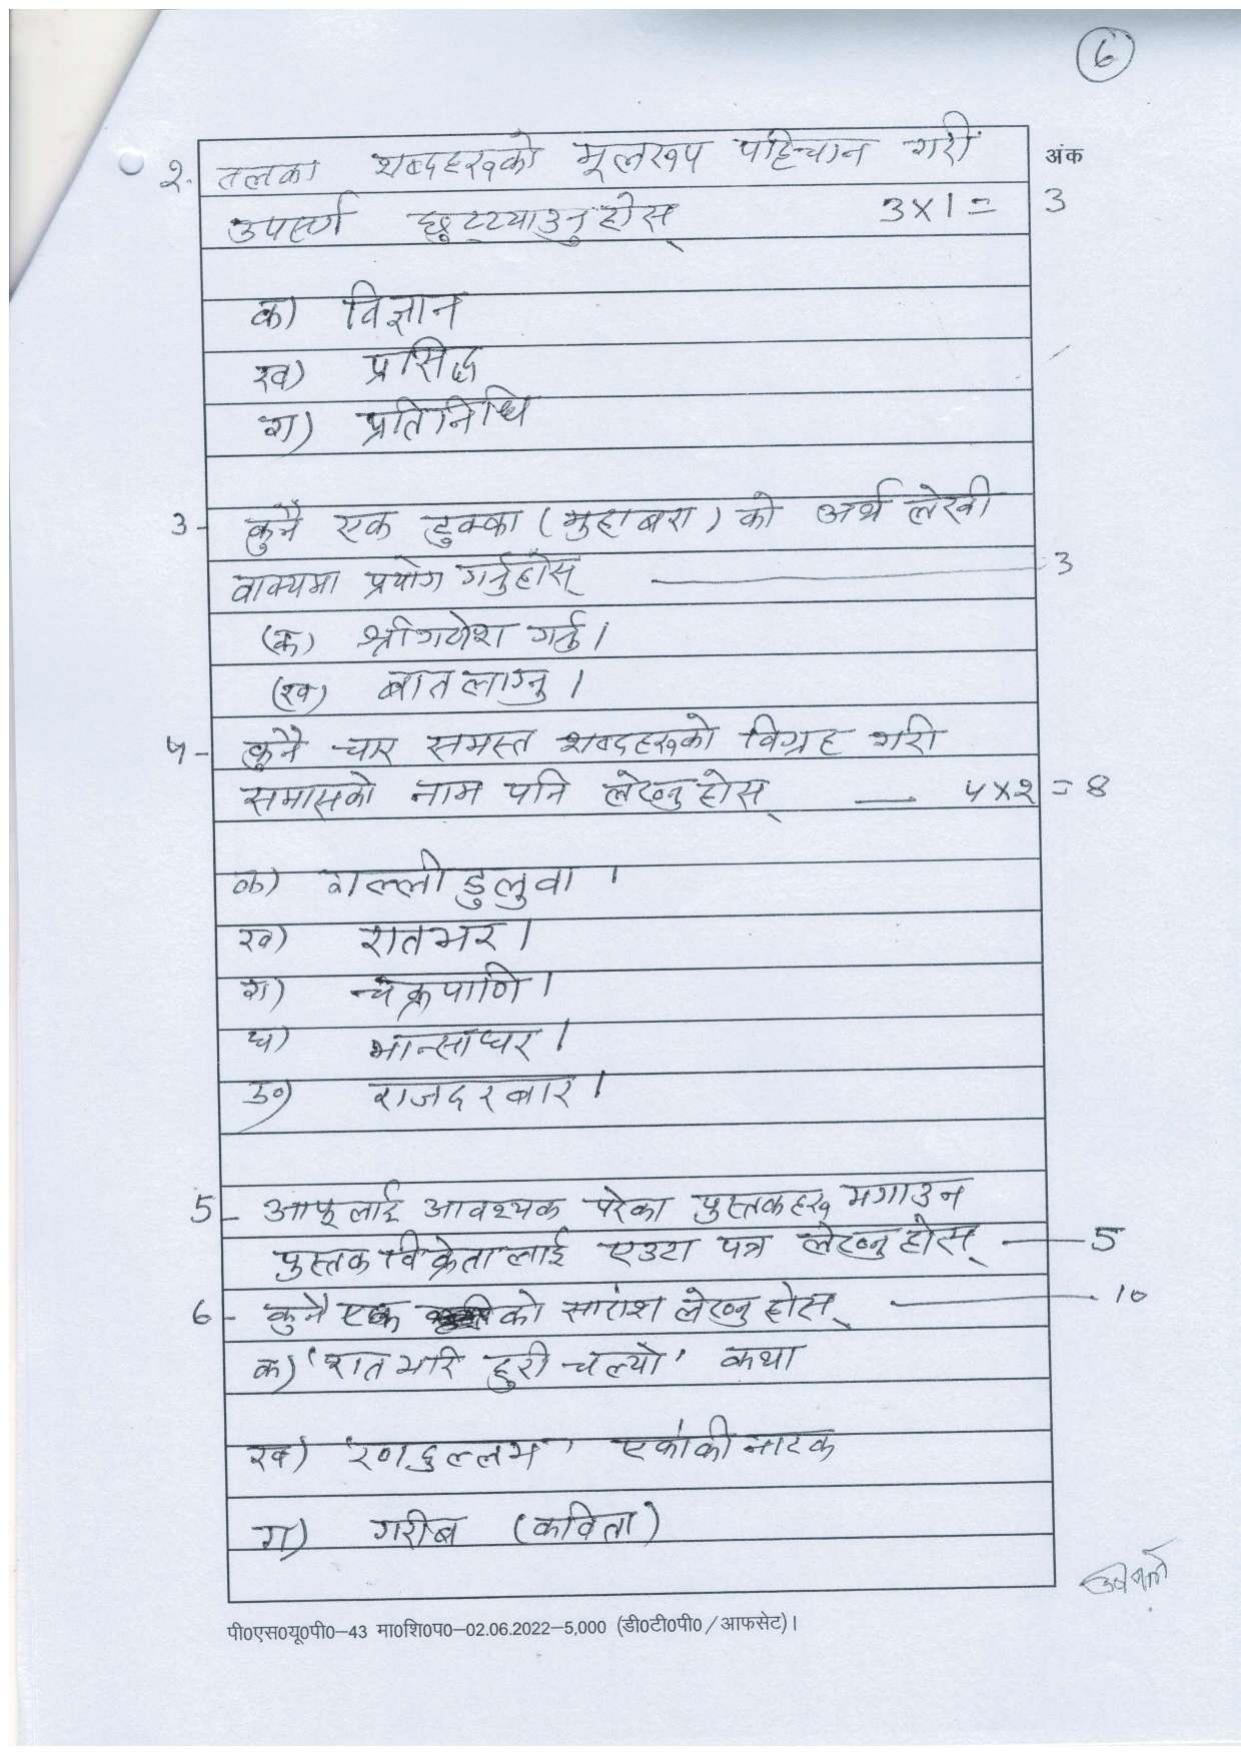 6
अंक
२. तलका शब्दहरूको मूलरूप पहिचान गरी
उपसर्ग छुट्ट्याउनु होस् 3 x 1 = 3
क) विज्ञान
ख) प्रसिद्ध
ग) प्रतिनिधि
3- कुनै एक टुक्का (मुहाबरा) को अर्थ लेखी
वाक्यमा प्रयोग गर्नुहोस् — 3
(क) श्रीगणेश गर्नु।
(ख) बात लाग्नु।
५- कुनै चार समस्त शब्दहरूको विग्रह गरी
समासको नाम पनि लेख्नु होस् — ५ x २ = 8
क) गल्ली डुलुवा ।
ख) रातभर।
ग) चक्रपाणि।
घ) भान्साघर।
ङ) राजदरबार।
5- आफूलाई आवश्यक परेका पुस्तकहरू मगाउन
पुस्तक विक्रेतालाई एउटा पत्र लेख्नु होस् — 5
6- कुनै एक को सारांश लेख्नु होस् — 10
क) 'रातभरि हुरी चल्यो' कथा
ख) 'रणदुल्लभ' एकांकी नाटक
ग) गरीब (कविता)
पी0एस0यू0पी0—43 मा0शि0प0—02.06.2022—5,000 (डी0टी0पी0/आफसेट)।